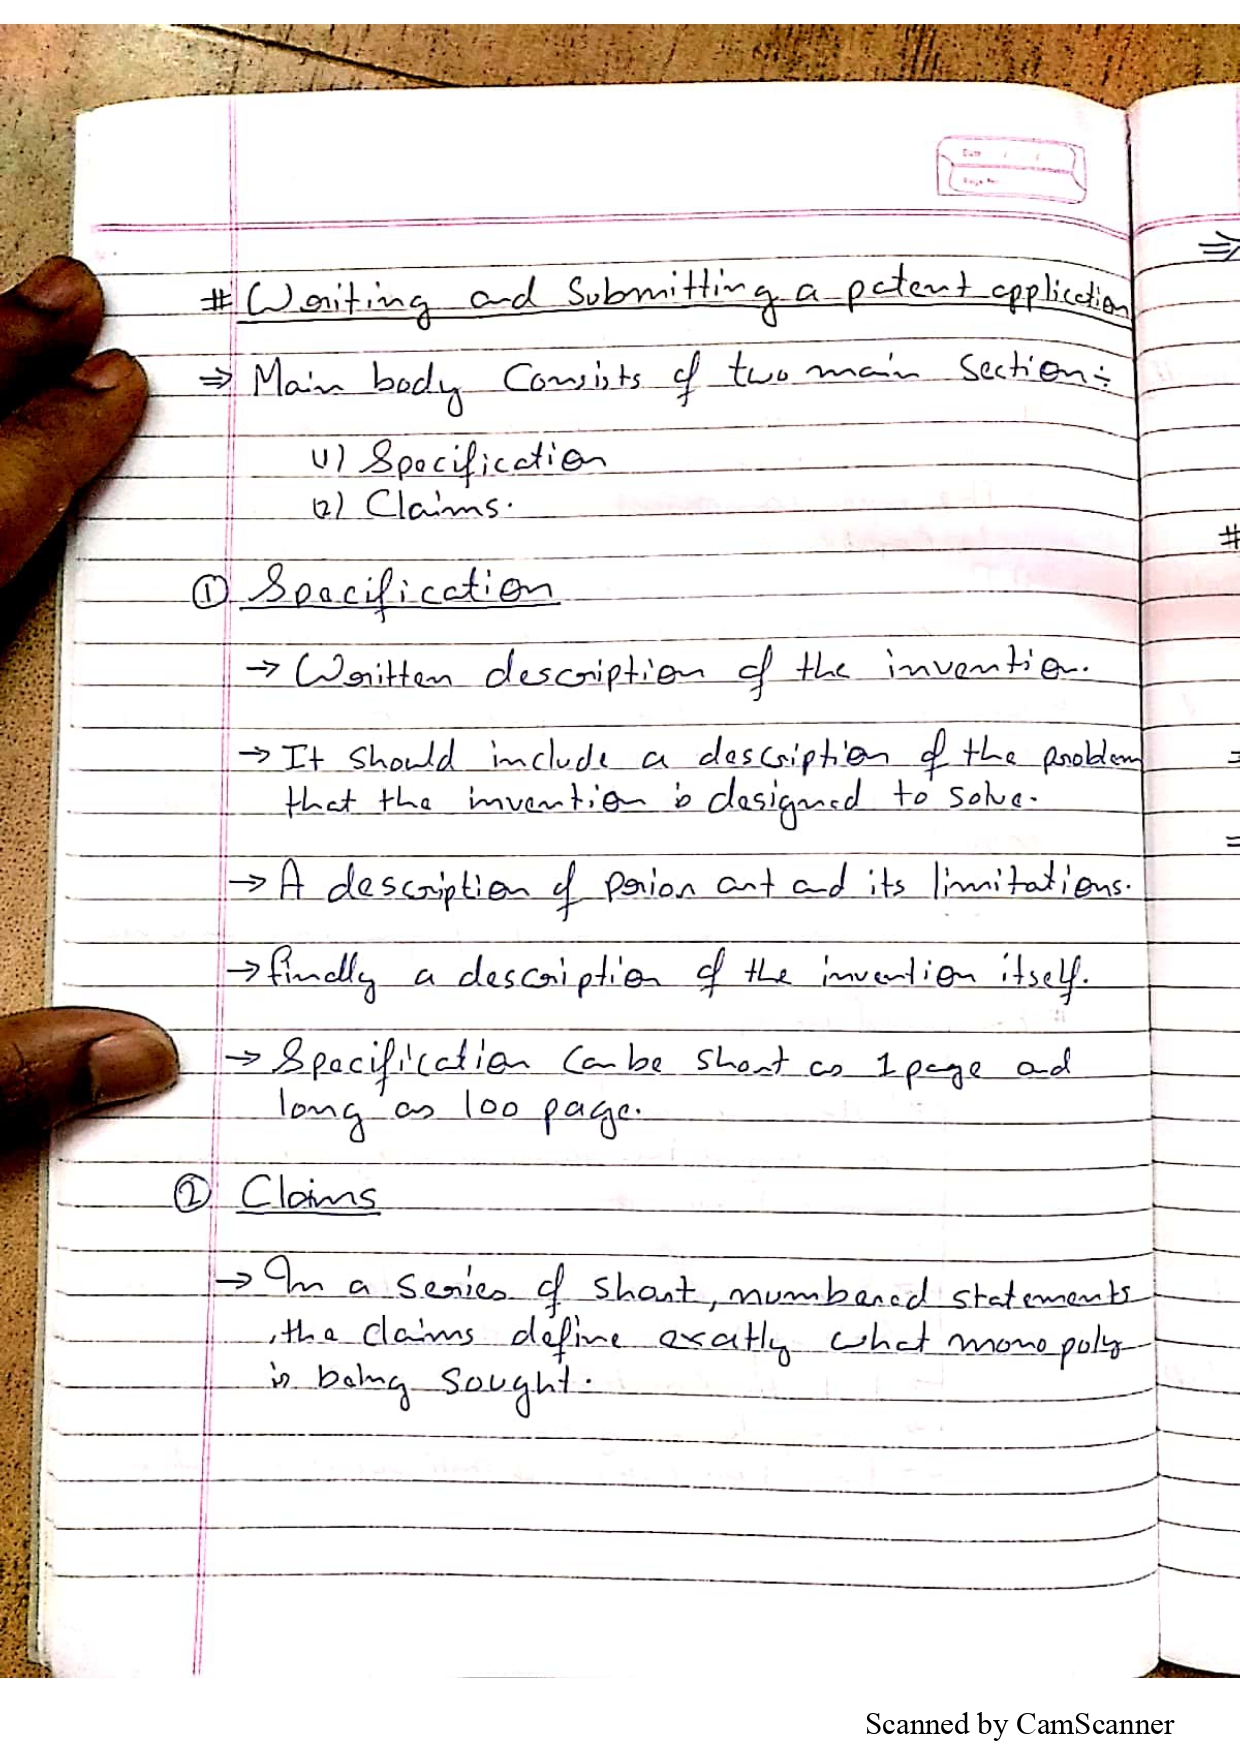 Date / /
Page No.
# Writing and Submitting a patent application
⇒ Main body Consists of two main Section:-
(1) Specification
(2) Claims.
① Specification
→ Written description of the invention.
→ It should include a description of the problem
that the invention is designed to solve.
→ A description of prior art and its limitations.
→ finally a description of the invention itself.
→ Specification can be short as 1 page and
long as 100 page.
② Claims
→ In a series of short, numbered statements
, the claims define exatly what monopoly
is being sought.
⇒
#
Scanned by CamScanner